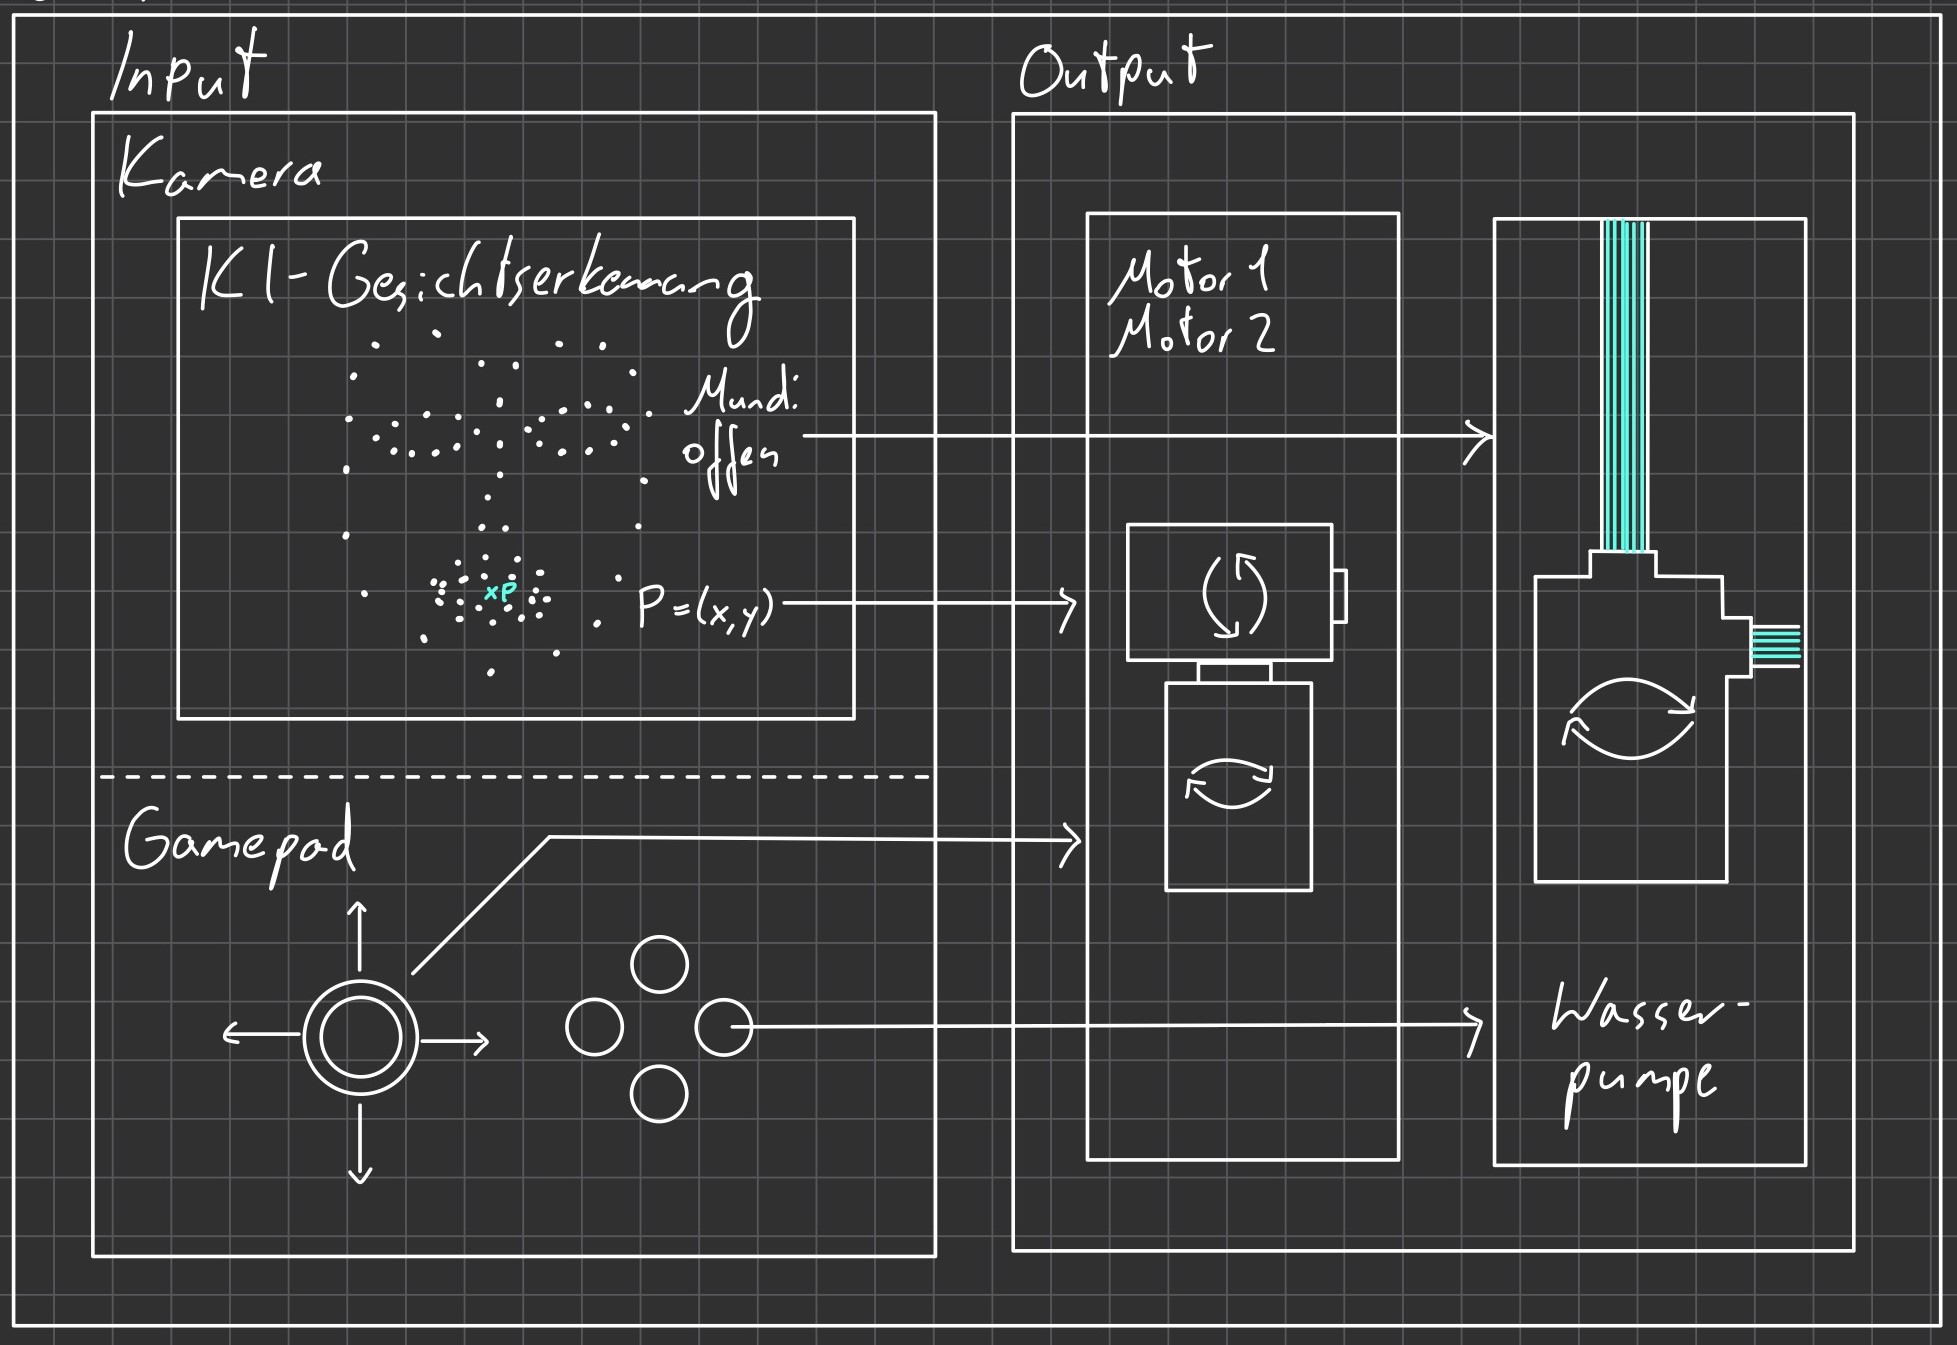 Input
Kamera
KI-Gesichtserkennung
Mund:
offen
xP
P=(x,y)
Gamepad
Output
Motor 1
Motor 2
Wasser-
pumpe